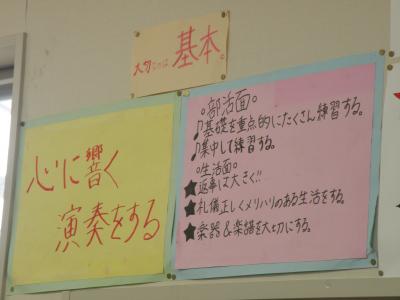 大切なのは 基本。
心に響く
演奏をする
○部活面○
♪基礎を重点的にたくさん練習する。
♪集中して練習する。
○生活面○
★返事は大きく!!
★礼儀正しくメリハリのある生活をする。
★楽器&楽譜を大切にする。